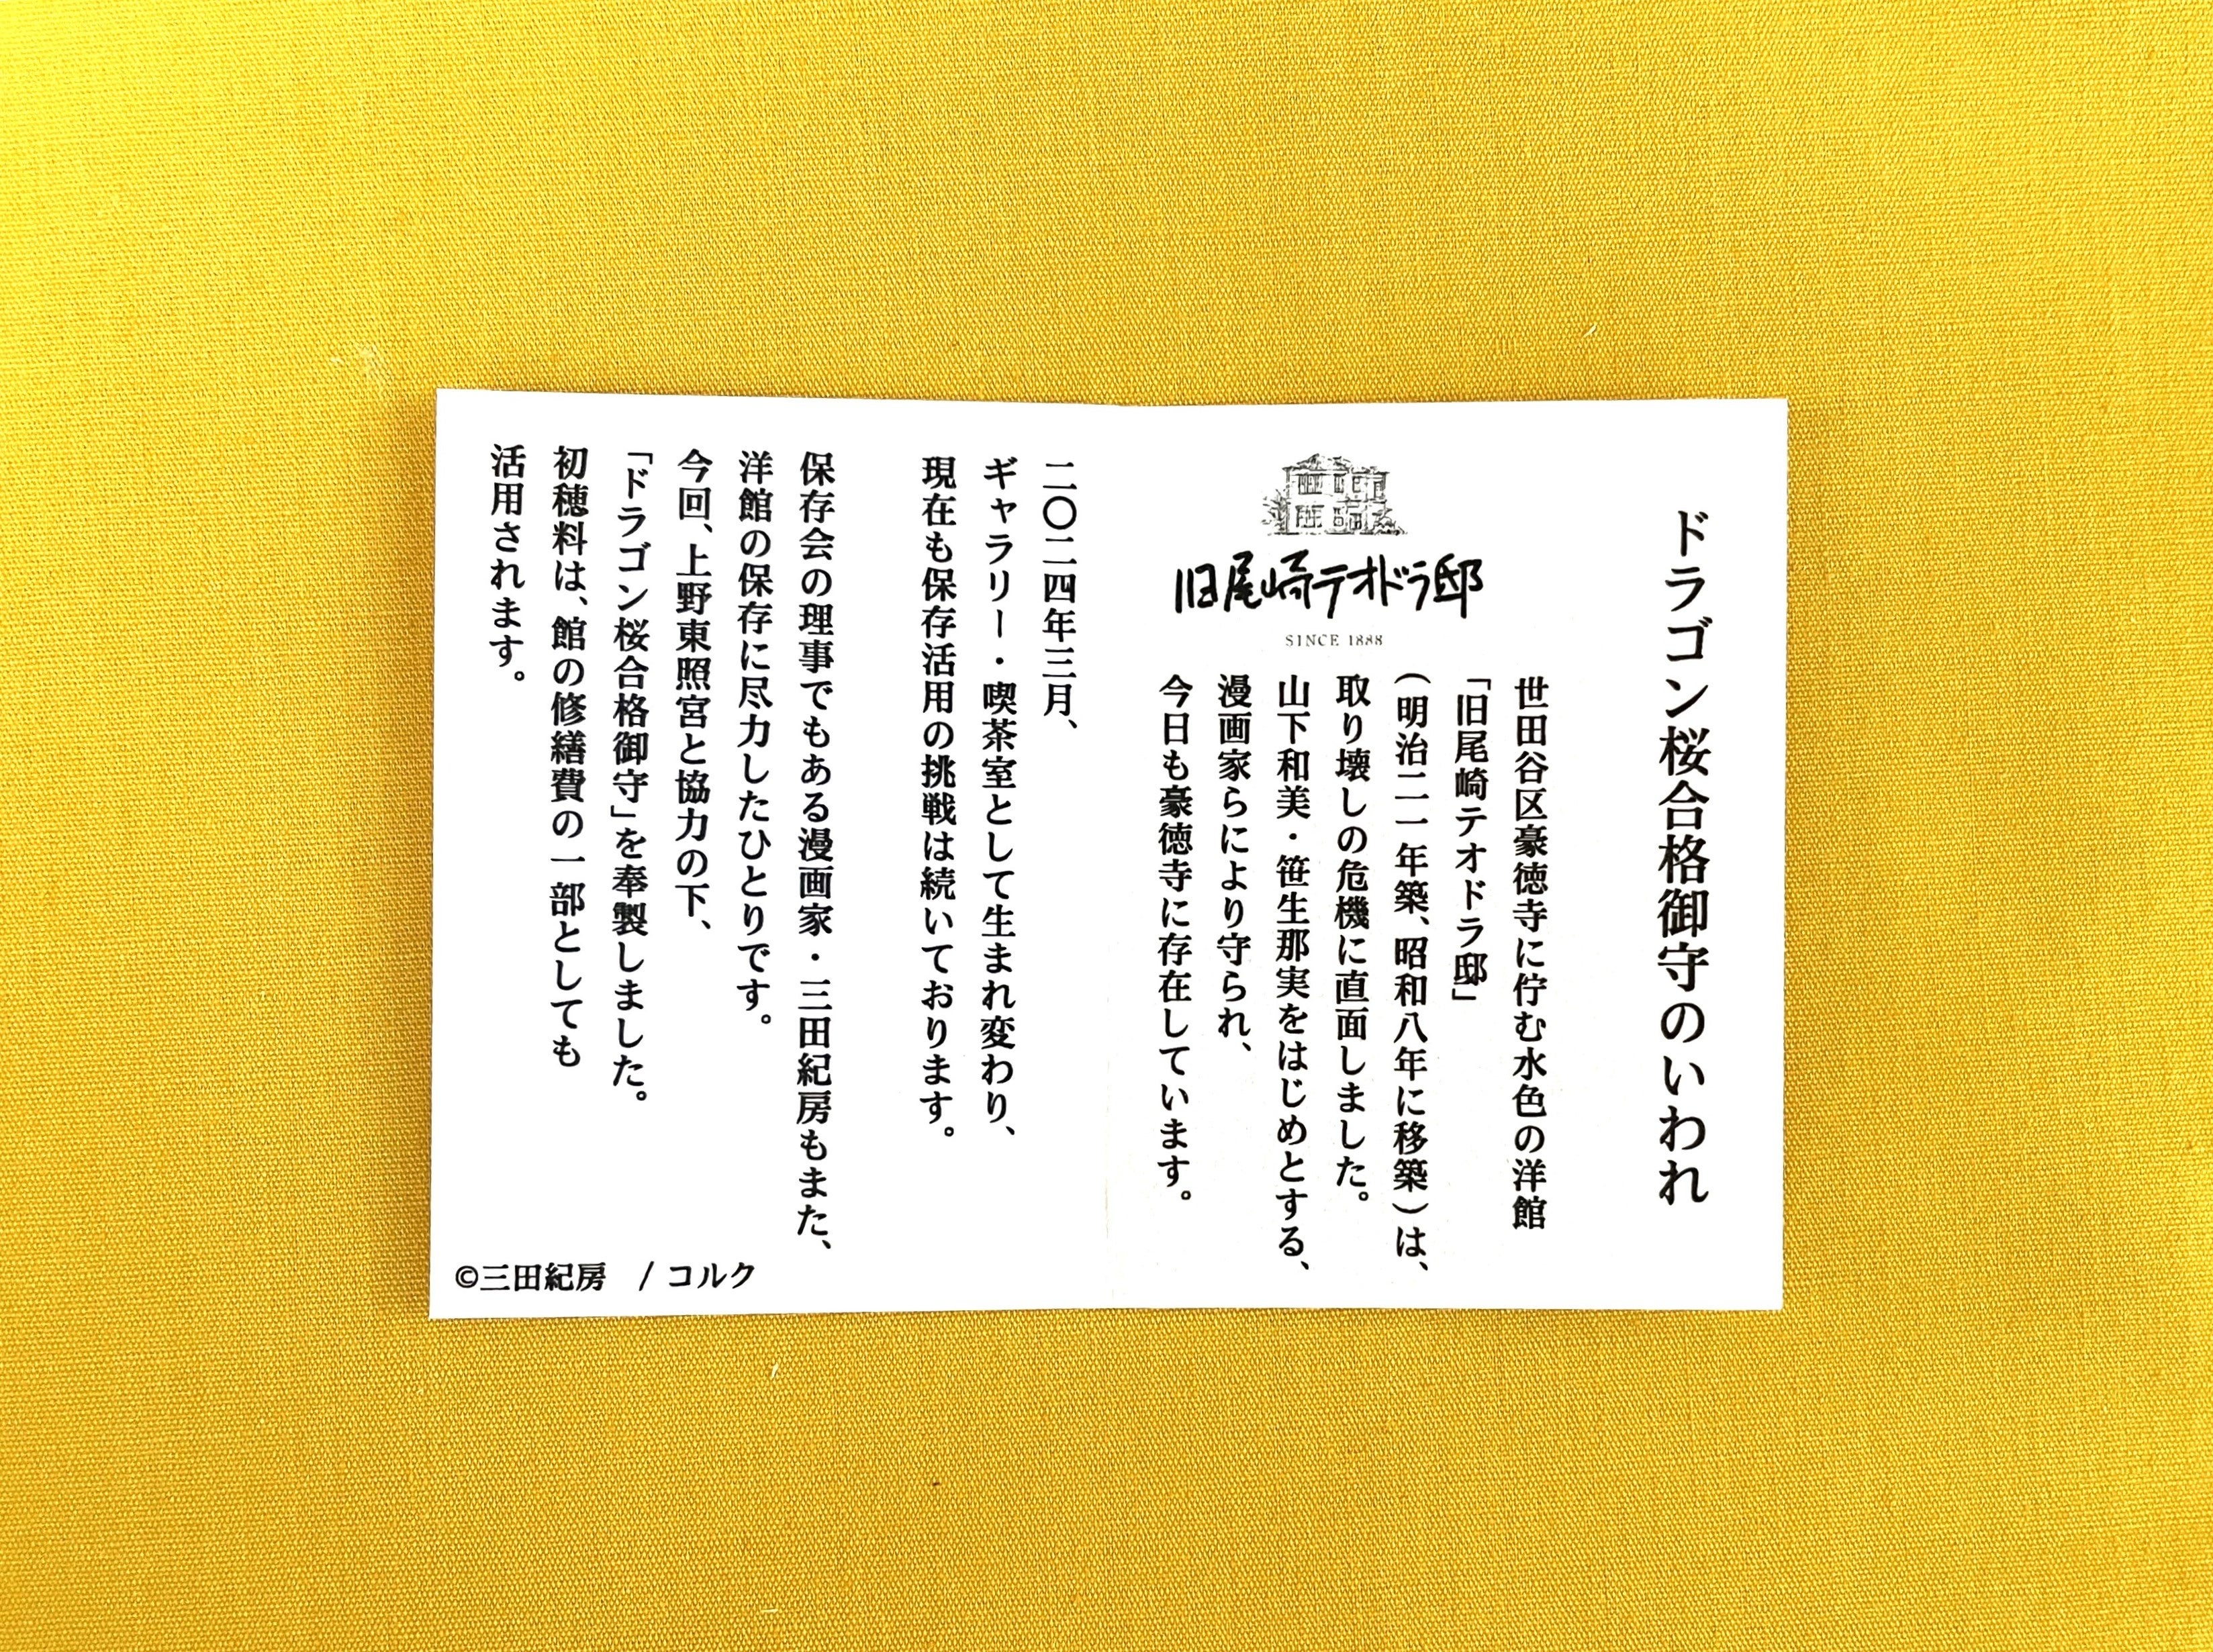 ドラゴン桜合格御守のいわれ
旧尾崎テオドラ邸
SINCE 1888
世田谷区豪徳寺に佇む水色の洋館
「旧尾崎テオドラ邸」
（明治二一年築、昭和八年に移築）は、
取り壊しの危機に直面しました。
山下和美・笹生那実をはじめとする、
漫画家らにより守られ、
今日も豪徳寺に存在しています。
二〇二四年三月、
ギャラリー・喫茶室として生まれ変わり、
現在も保存活用の挑戦は続いております。
保存会の理事でもある漫画家・三田紀房もまた、
洋館の保存に尽力したひとりです。
今回、上野東照宮と協力の下、
「ドラゴン桜合格御守」を奉製しました。
初穂料は、館の修繕費の一部としても
活用されます。
©三田紀房 / コルク